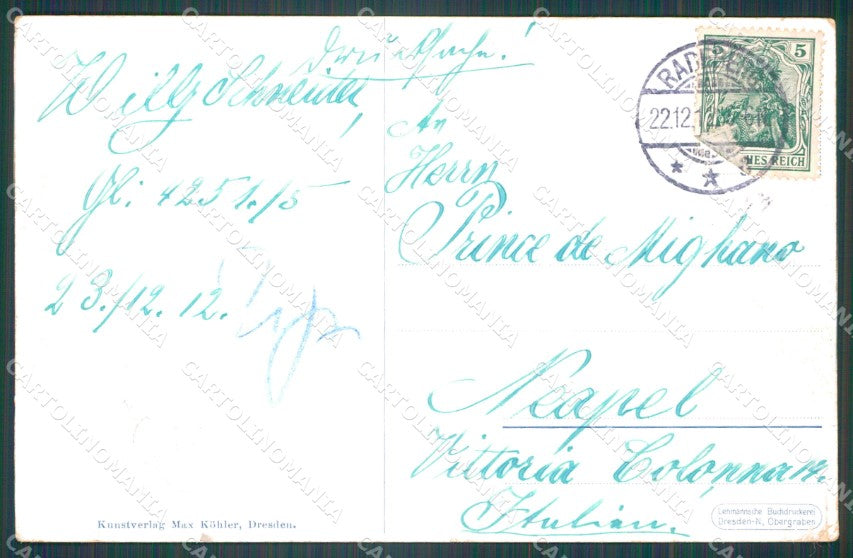 Willy Schneider,
Gl: 4251./5
23./12. 12.
An
Herrn
Prince de Mighano
Neapel
Vittoria Colonna
Italien.
5
22.12.
HES REICH
Kunstverlag Max Köhler, Dresden.
Lehmannsche Buchdruckerei
Dresden-N, Obergraben
CARTOLINOMANIA